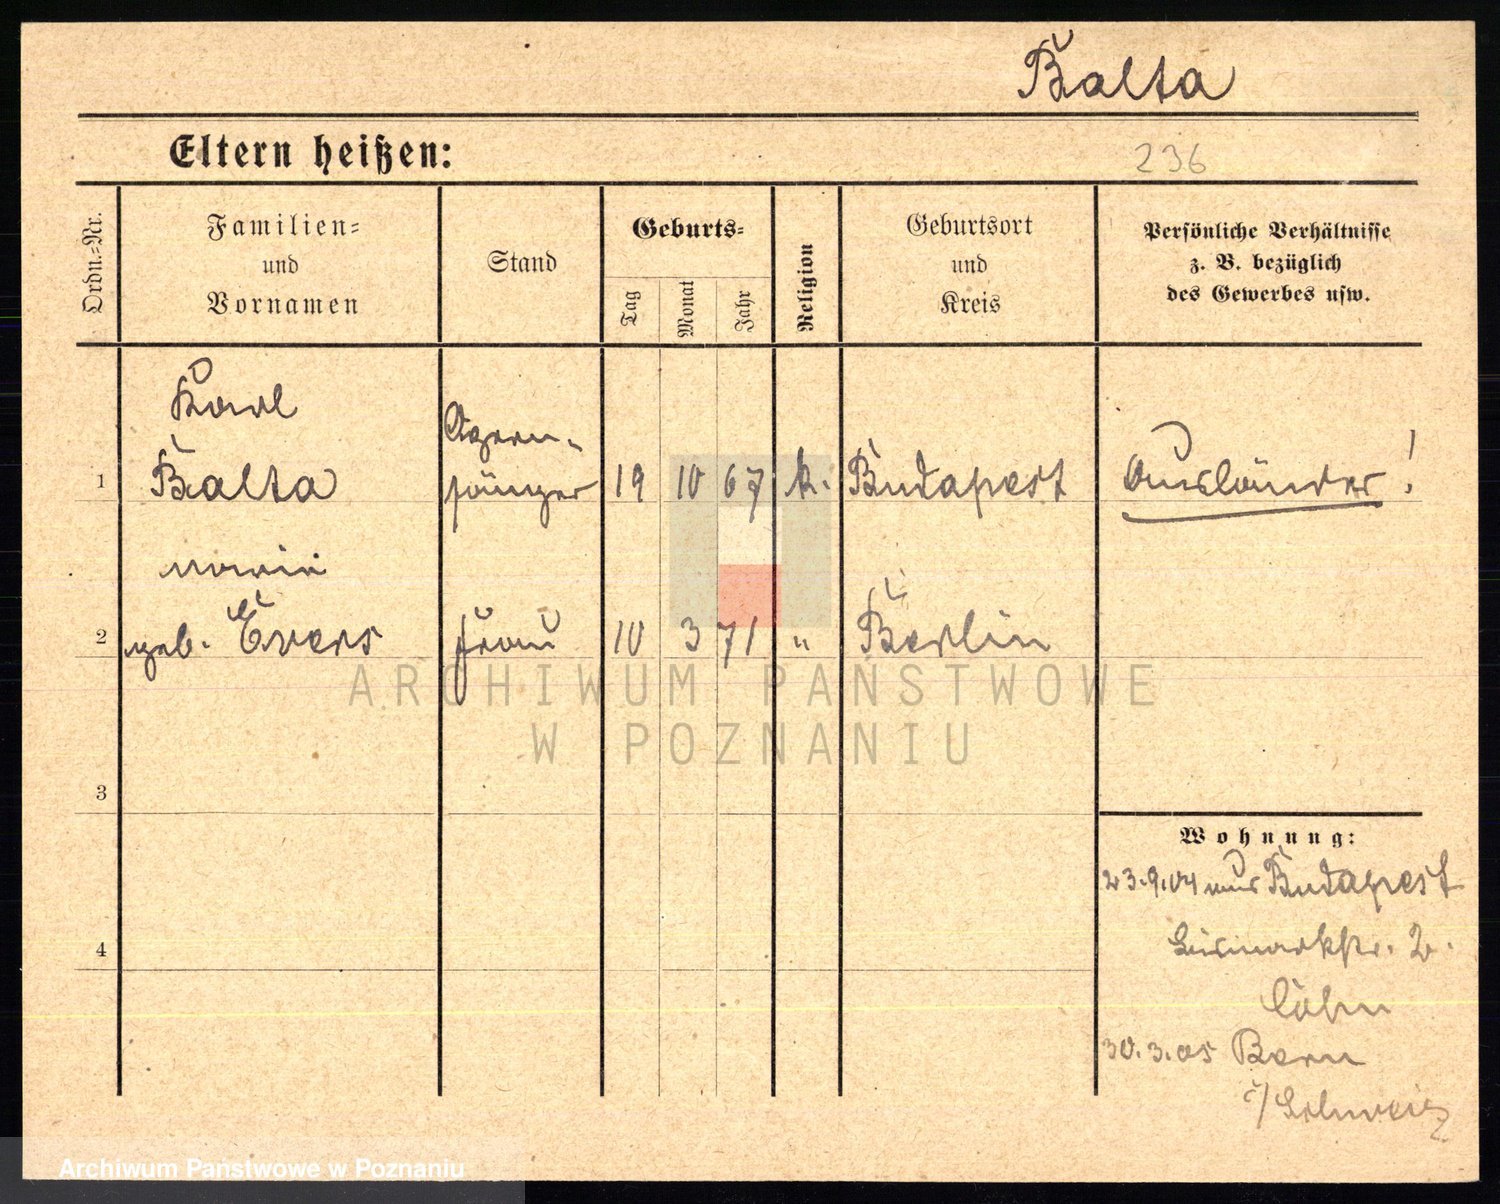 Balta
Eltern heißen:
236
Ordn.-Nr.
Familien- und Vornamen
Stand
Geburts-
Tag
Monat
Jahr
Religion
Geburtsort und Kreis
Persönliche Verhältnisse
z. B. bezüglich
des Gewerbes usw.
Karl
Opern-
1 Balta sänger 19 10 67 k. Budapest Ausländer!
Maria
2 geb. Evers Frau 10 3 71 " Berlin
3
4
Wohnung:
23.9.04 aus Budapest
Bismarkstr. 2.
30.3.05 Bern
i/Schweiz
ARCHIWUM PAŃSTWOWE
W POZNANIU
Archiwum Państwowe w Poznaniu